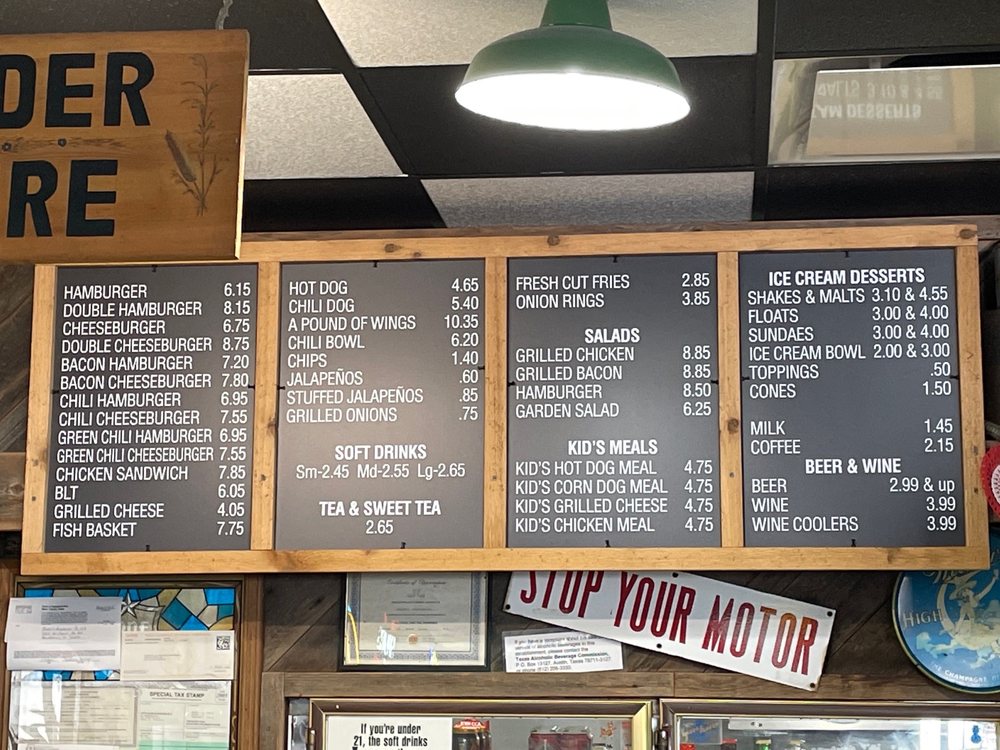 DER
RE
HAMBURGER 6.15
DOUBLE HAMBURGER 8.15
CHEESEBURGER 6.75
DOUBLE CHEESEBURGER 8.75
BACON HAMBURGER 7.20
BACON CHEESEBURGER 7.80
CHILI HAMBURGER 6.95
CHILI CHEESEBURGER 7.55
GREEN CHILI HAMBURGER 6.95
GREEN CHILI CHEESEBURGER 7.55
CHICKEN SANDWICH 7.85
BLT 6.05
GRILLED CHEESE 4.05
FISH BASKET 7.75
HOT DOG 4.65
CHILI DOG 5.40
A POUND OF WINGS 10.35
CHILI BOWL 6.20
CHIPS 1.40
JALAPEÑOS .60
STUFFED JALAPEÑOS .85
GRILLED ONIONS .75
SOFT DRINKS
Sm-2.45 Md-2.55 Lg-2.65
TEA & SWEET TEA
2.65
FRESH CUT FRIES 2.85
ONION RINGS 3.85
SALADS
GRILLED CHICKEN 8.85
GRILLED BACON 8.85
HAMBURGER 8.50
GARDEN SALAD 6.25
KID'S MEALS
KID'S HOT DOG MEAL 4.75
KID'S CORN DOG MEAL 4.75
KID'S GRILLED CHEESE 4.75
KID'S CHICKEN MEAL 4.75
ICE CREAM DESSERTS
SHAKES & MALTS 3.10 & 4.55
FLOATS 3.00 & 4.00
SUNDAES 3.00 & 4.00
ICE CREAM BOWL 2.00 & 3.00
TOPPINGS .50
CONES 1.50
MILK 1.45
COFFEE 2.15
BEER & WINE
BEER 2.99 & up
WINE 3.99
WINE COOLERS 3.99
STOP YOUR MOTOR
HIGH
SPECIAL TAX STAMP
Texas Alcoholic Beverage Commission,
If you're under
21, the soft drinks